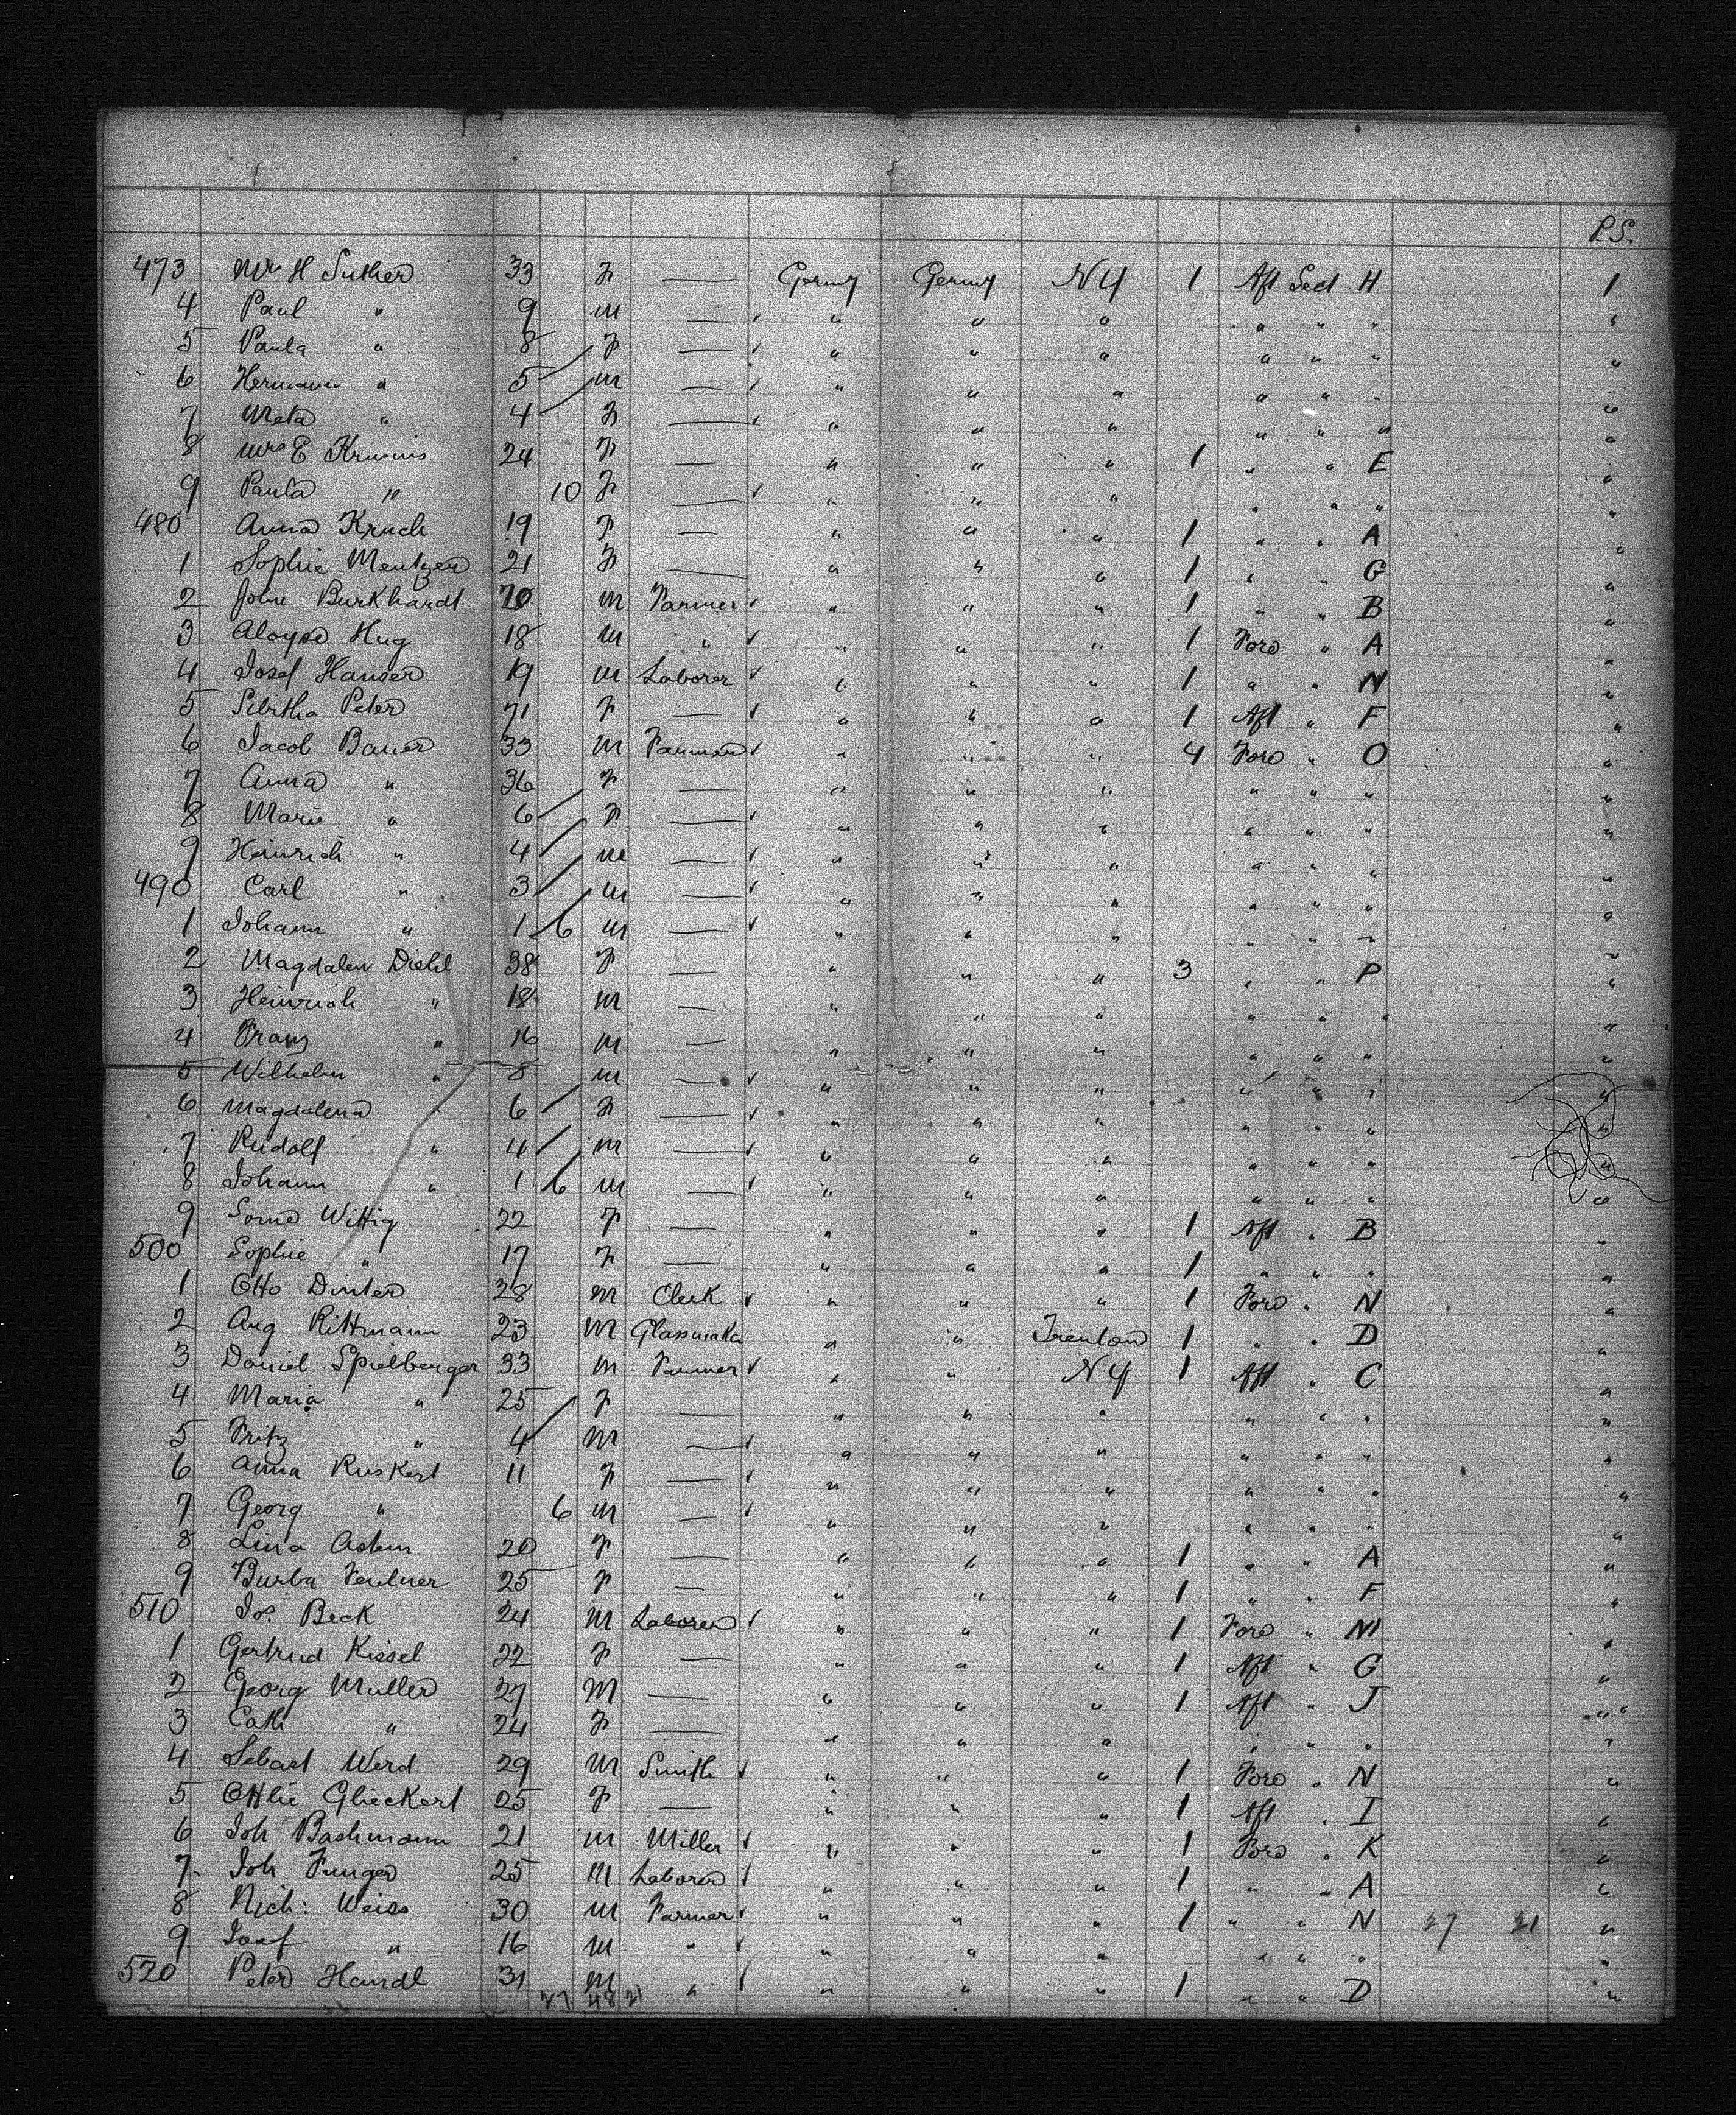 P.S.
473 Mrs H Suther 33 F — Germy Germy NY 1 Aft Sect H 1
4 Paul " 9 m — " " " " " " "
5 Paula " 8 F — " " " " " " "
6 Hermann " 5 m — " " " " " " "
7 Meta " 4 F — " " " " " " "
8 Mrs E 24 F — " " " 1 " " E "
9 Paula " 10 F — " " " " " " "
480 Anna Kruch 19 F — " " " 1 " " A "
1 Sophie Mentzer 21 F — " " " 1 " " G "
2 John Burkhardt m Farmer " " " 1 " " B "
3 Aloyse Hug 18 m " " " " 1 Ford " A "
4 Josef Hauser 19 m Laborer " " " 1 " " N "
5 Peter F — " " " 1 Aft " F "
6 Jacob Bauer 33 m Farmer " " " 4 Ford " O "
7 Anna " 36 F — " " " " " " "
8 Marie " 6 F — " " " " " " "
9 Heinrich " 4 m — " " " " " " "
490 Carl " 3 m — " " " " " " "
1 Johann " 1 6 m — " " " " " " "
2 Magdalen Diehl 38 F — " " " 3 " " P "
3 Heinrich " 18 m — " " " " " " "
4 Franz " 16 m — " " " " " " "
5 Wilhelm " 8 m — " " " " " " "
6 Magdalena " 6 F — " " " " " " "
7 Rudolf " 4 m — " " " " " " "
8 Johann " 1 6 m — " " " " " " "
9 Wittig 22 F — " " " 1 Aft " B "
500 Sophie " 17 F — " " " 1 " " " "
1 Otto Dinter 28 m Clerk " " " 1 Ford " N "
2 Aug Rittmann 23 M Glassmaker " " Trenton 1 " " D "
3 Daniel Spielberger 33 m Farmer " " NY 1 Aft " C "
4 Maria " 25 F — " " " " " " "
5 Fritz " 4 M — " " " " " " "
6 Anna Ruskert 11 F — " " " " " " "
7 Georg " 6 m — " " " " " " "
8 Lina 20 F — " " " 1 " " A "
9 Burba 25 F — " " " 1 " " F "
510 Jos. Beck 24 M Laborer " " " 1 Ford " M "
1 Gertrud Kissel 22 F — " " " 1 Aft " G "
2 Georg Muller 27 M — " " " 1 Aft " J "
3 Cath " 24 F — " " " " " " "
4 Sebast Werd 29 M Smith " " " 1 Ford " N "
5 Ottlie Glieckert 25 F — " " " 1 Aft " I "
6 Joh Bashmann 21 m Miller " " " 1 Ford " K "
7 Joh Funger 25 M Laborer " " " 1 " " A "
8 Nich: Weiss 30 m Farmer " " " 1 " " N 27 21 "
9 Josef " 16 m " " " " " " " "
520 Peter Handl 31 M " " " " 1 " " D "
27 48 21